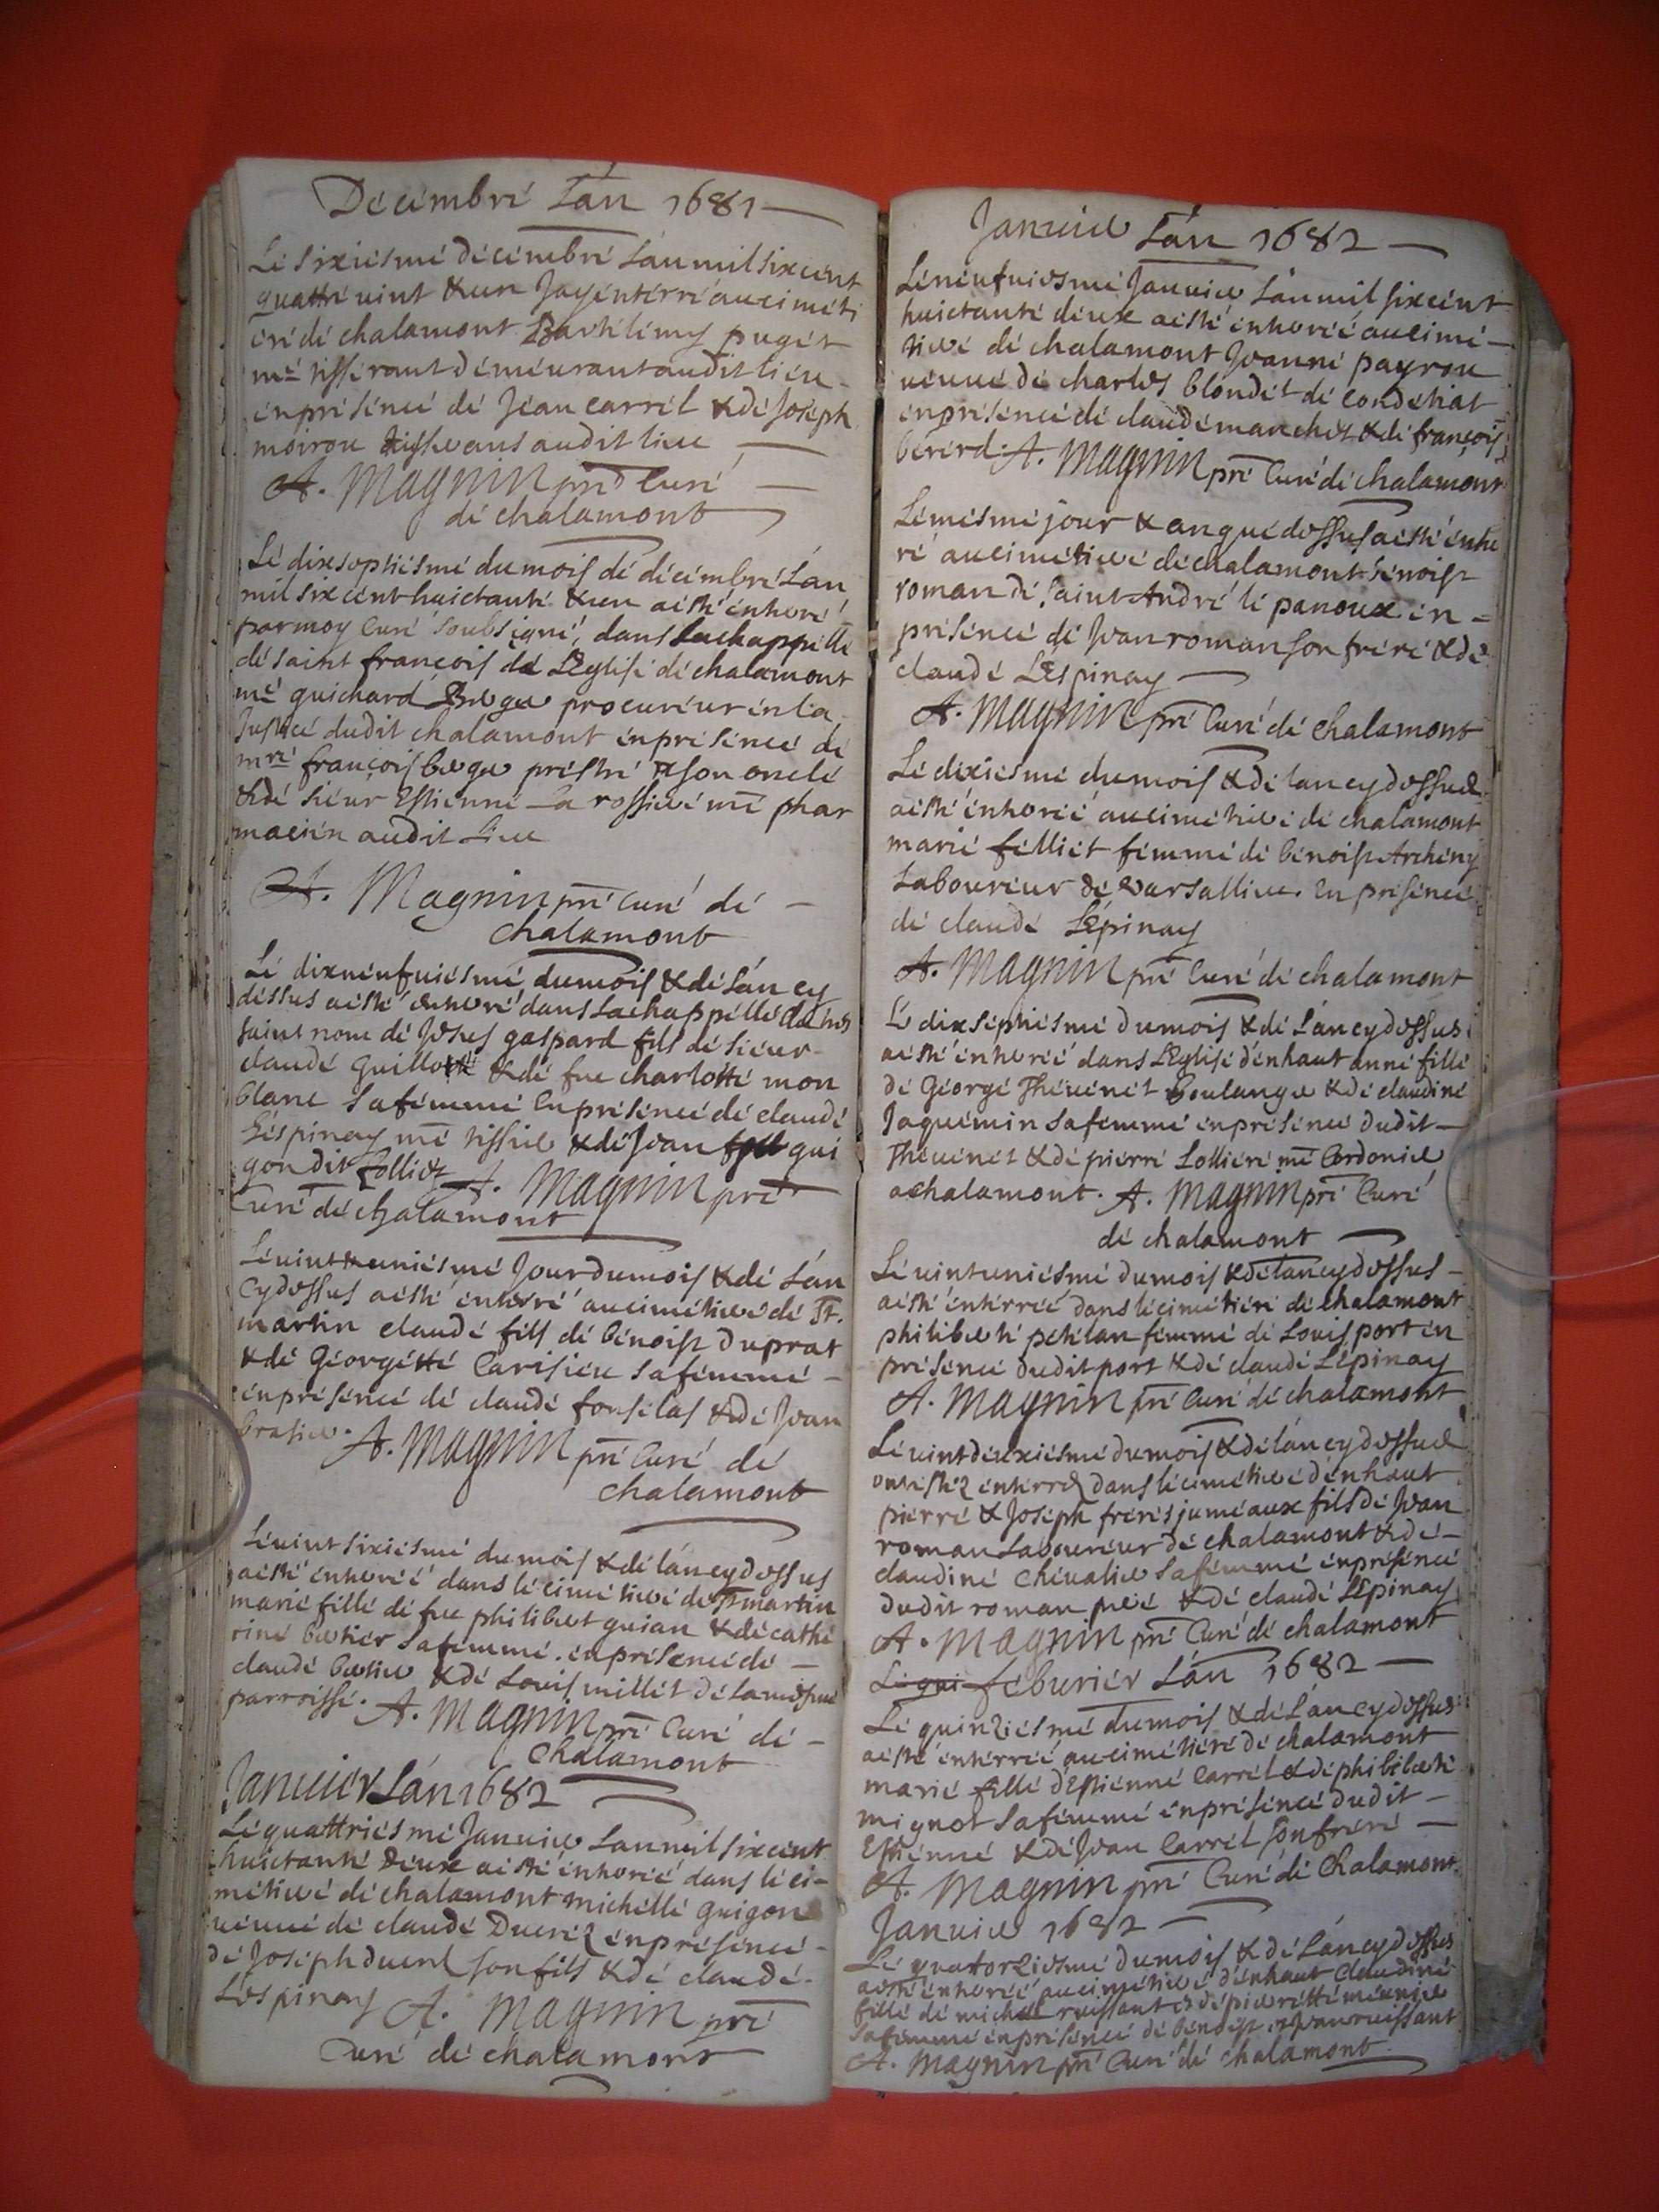 Décémbré Lán 1681
Lé sixiésmé décémbré Lán mil six cent
quattré vint & un Jay éntérré au ciméti
éré dé chalamont Bartélémy pugét
mé tissérant déméurant audit liéu
én présénce dé Jéan carrél & dé Joséph
moiron tisserans audit lieu
A. Magnin pré Curé
dé chalamont
Lé dixséptiésmé du mois dé décémbré Lán
mil six cént huictanté & un a ésté énterré
par moy Curé soubsigné, dans La chappéllé
dé saint françois dé LEglisé dé chalamont
mé guichard Berger procuréur én la
Justicé dudit chalamont én présénce dé
mré françois berger préstré & son onclé
& dé siéur Estienné La rossieré mé phar
macién audit Lieu
A. Magnin pré Curé dé
chalamont
Lé dixnéufuiésmé du mois & dé Lán cy
déssus a ésté énterré dans La chappéllé du tres
saint nom dé Jésus gaspard fils dé siéur
claudé Guillot & dé fue charlotté mon
blanc sa fémmé En présénce dé claudé
Léspinay mé tissier & dé Jean gui
gon dit folliet A. Magnin pré
Curé dé chalamont
Lé vint uniésmé Jour du mois & dé Lán
cy dessus a ésté énterré au cimétieré dé St.
martin claudé fils dé bénoist duprat
& dé Géorgétté Carisieu sa fémmé
én présénce dé claudé fonsélas & dé Jean
bratier. A. Magnin pré Curé dé
chalamont
Lé vint sixiésmé du mois & dé lán cy dessus
a ésté énterréé dans lé cimétieré de St martin
marié fillé dé fue philibert guian & dé cathé
riné bertiér sa fémmé. én présénce dé
claudé bertier & dé Louis millét dé La mesmé
parroissé. A. Magnin pré Curé dé
chalamont
Januiér Lán 1682
Lé quattriésmé Januier Lán mil six cént
huictanté déux a ésté énterréé dans lé ci-
métieré dé chalamont michéllé guigon
véuué dé claudé Ducréz én présénce
dé Joséph ducré son fils & dé claudé
Léspinay A. Magnin pré
Curé dé chalamont
Januier Lán 1682
Lé néufuiésmé Januier Lán mil six cént
huictanté déux a ésté énterréé au cimé-
tieré dé chalamont Jeanné payron
véuué dé charles blondét dé condéhiat
én présénce dé claudé manchét & dé françois
bérérd. A. Magnin pré Curé dé chalamont
Lé mésmé jour & an qué dessus a ésté énte
ré au cimétieré dé chalamont bénoist
roman dé saint André lé panoux én
présénce dé Jean roman son fréré & dé
claudé LEspinay
A. Magnin pré Curé dé chalamont
Lé dixiésmé du mois & dé lan cy dessus
a ésté énterréé au cimétieré dé chalamont
marié félliét fémmé dé bénoist Archény
Labouréur dé versallieu. En présénce
dé claudé LEpinay
A. Magnin pré Curé dé chalamont
Lé dixséptiésmé du mois & dé Lán cy dessus
a ésté énterréé dans LEglisé dénhaut anné fillé
dé Géorgé Thévénét boulanger & dé claudiné
Jaquémin sa fémmé én présénce dudit
Thévénét & dé piérré Lolliéré mé Cordonier
a chalamont. A. Magnin pré Curé
dé chalamont
Lé vint uniésmé du mois & dé lán cy dessus
a ésté éntérréé dans lé cimétiéré dé chalamont
philiberté pétélan fémmé dé Louis port én
présénce dudit port & dé claudé LEpinay
A. Magnin pré Curé dé chalamont
Lé vint déuxiésmé du mois & dé lán cy dessus
ont éstéz éntérréz dans lé cimétieré dénhaut
piérré & Joséph fréres juméaux fils dé Jean
roman Labouréur dé chalamont & dé
claudiné chévalier sa fémmé én présénce
dudit roman peré & dé claudé LEpinay
A. Magnin pré Curé dé chalamont
Lé qui féburiér Lán 1682
Lé quinziésmé du mois & dé Lán cy dessus
a ésté éntérréé au cimétiéré dé chalamont
marié fillé dEstiénné Carrél & dé philiberté
mignot sa fémmé én présénce dudit
Estiénné & dé Jean Carrél son fréré
A. Magnin pré Curé dé chalamont
Januier 1682
Lé quatorziesmé du mois & dé Lán cy dessus
a ésté énterréé au cimétieré dénhaut claudiné
fillé dé michel ruissant & dé pierrétté méunier
sa fémmé én présénce dé bénoist & Jean ruissant
A. Magnin pré Curé dé chalamont